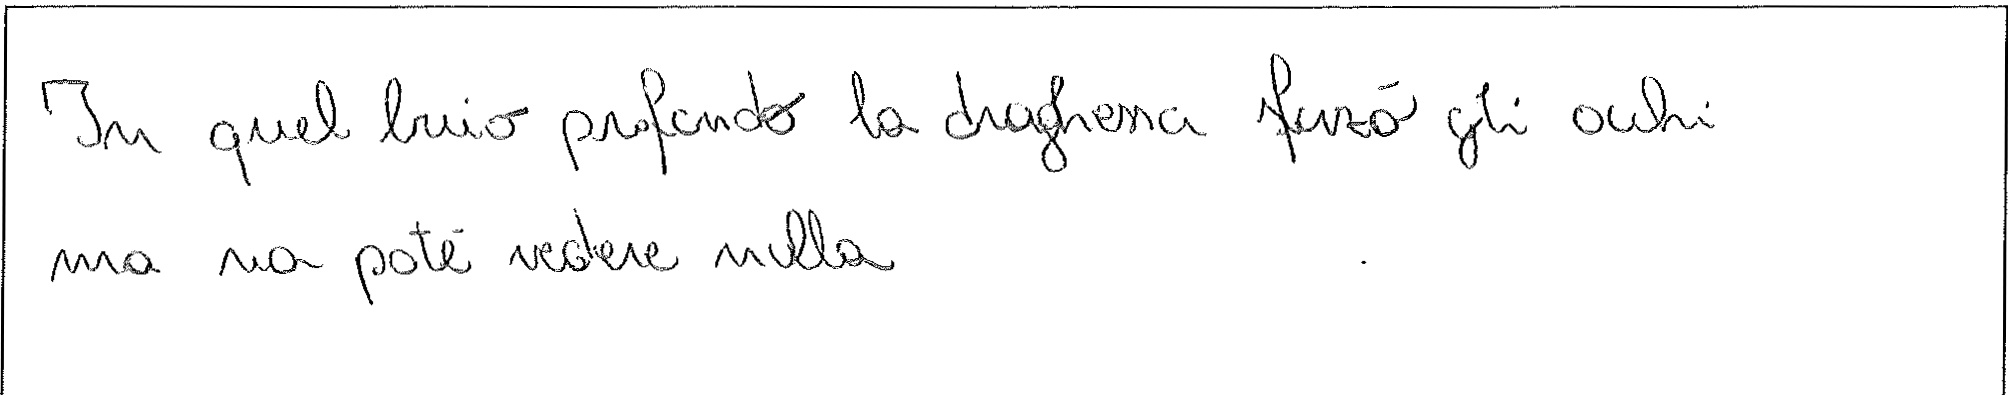 In quel buio profondo la draghessa forzò gli occhi
ma non poté vedere nulla